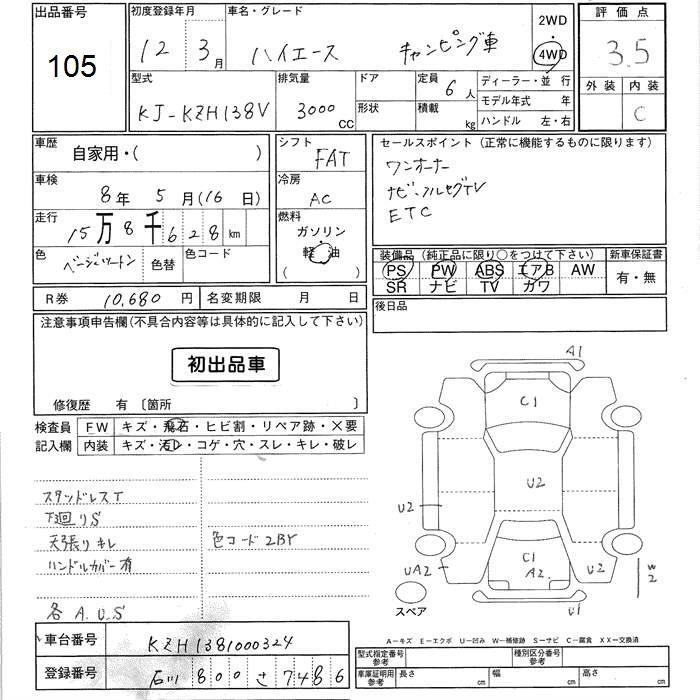 出品番号
105
初度登録年月
12 3月
車名・グレード
ハイエース キャンピング車
2WD
・
4WD
評価点
3.5
外装 内装
C
型式
KJ-KZH138V
排気量
3000
CC
ドア
形状
定員
6人
積載
kg
ディーラー・並行
モデル年式 年
ハンドル 左・右
車歴
自家用・( )
車検
8年 5月(16日)
走行
15万8千628km
色
ベージュツートン
色替
色コード
シフト
FAT
冷房
AC
燃料
ガソリン
軽油
( )
セールスポイント (正常に機能するものに限ります)
ワンオーナー
ナビ・フルセグTV
ETC
装備品 (純正品に限り○をつけて下さい)
PS PW ABS エアB AW
SR ナビ TV カワ
新車保証書
有・無
R券 10,680円 名変期限 月 日
後日品
注意事項申告欄(不具合内容等は具体的に記入して下さい)
初出品車
修復歴 有 〔箇所 〕
検査員
記入欄
FW キズ・飛石・ヒビ割・リペア跡・X要
内装 キズ・汚レ・コゲ・穴・スレ・キレ・破レ
スタッドレスT
下廻りS
天張りキレ
色コード2BY
ハンドルカバー有
各A.U.S
A1
C1
U2
U2
UA2
C1
A2
U2
W2
U1
スペア
A-キズ E-エクボ U-凹み W-補修跡 S-サビ C-腐食 XX-交換済
車台番号 KZH1381000324
登録番号 石川 800 さ 7486
型式指定番号
参考
種別区分番号
参考
車庫証明用
参考
長さ cm 幅 cm 高さ cm